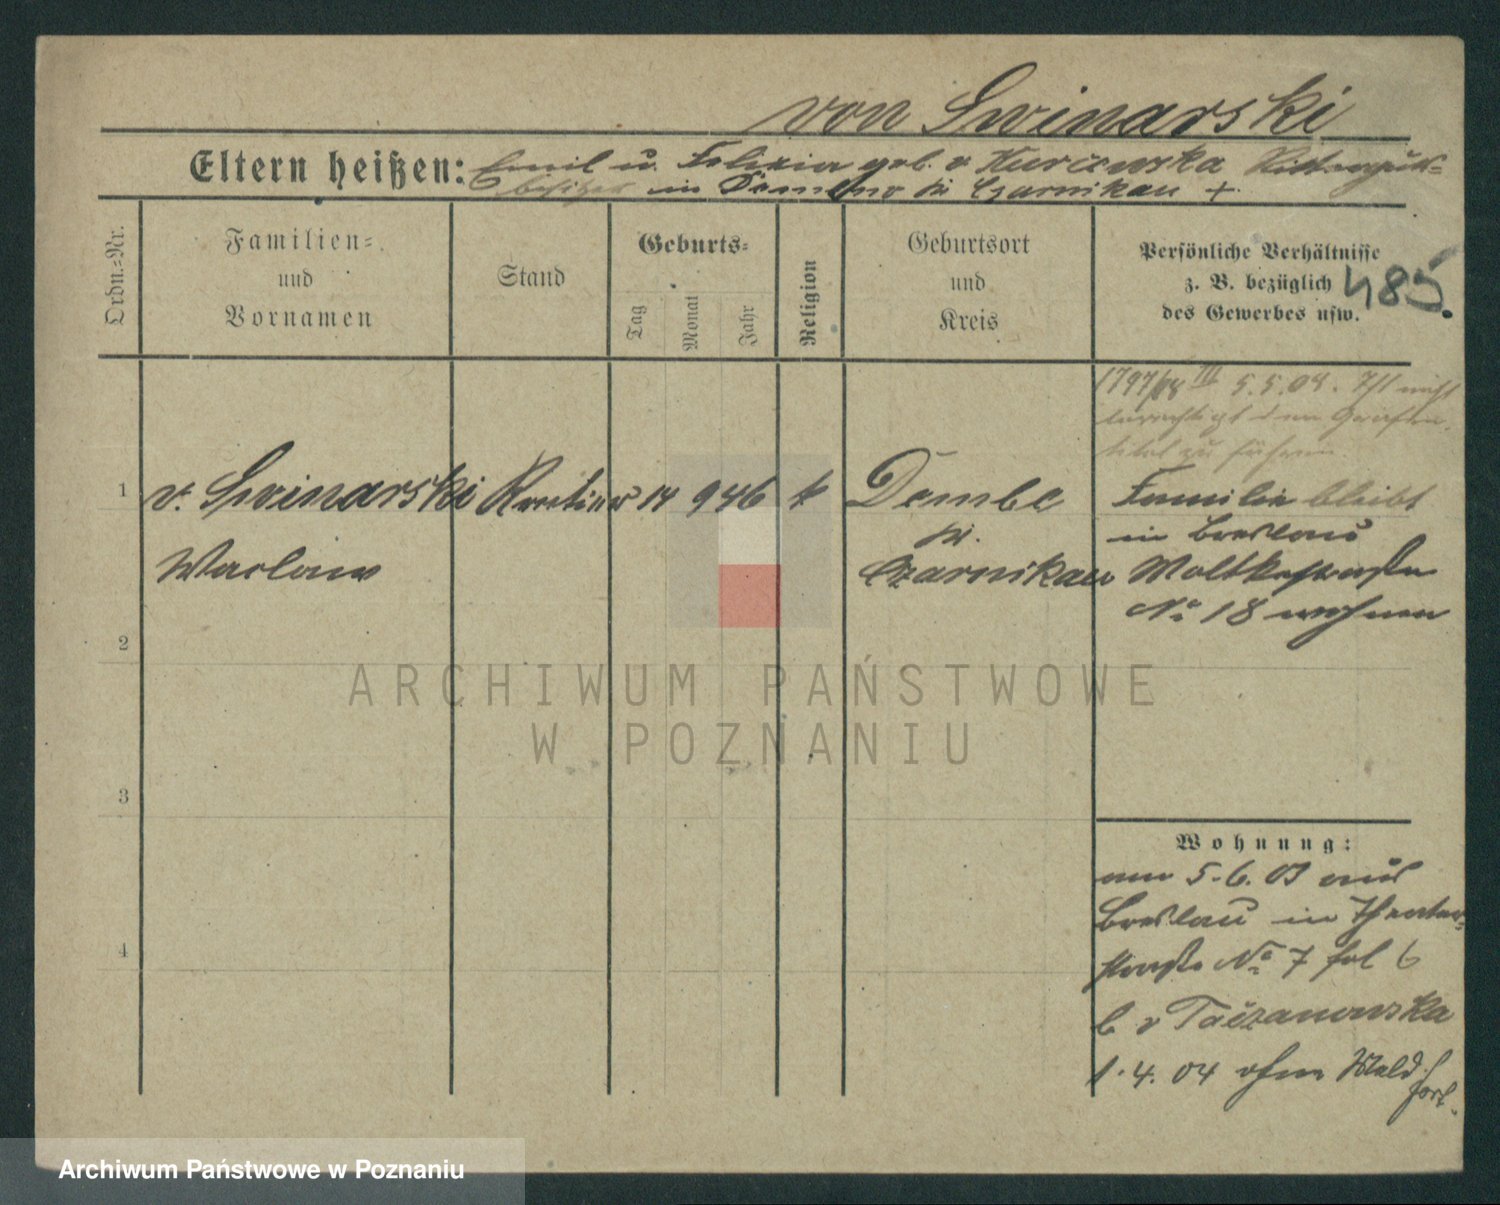 von Swinarski
Eltern heißen: Emil u. Felixia geb. v Kurcewska Ritterguts=
besitzer in Dembno Kr Czarnikau +.
Ordn.=Nr.
Familien=
und
Vornamen
Stand
Geburts=
Tag
Monat
Jahr
Religion
Geburtsort
und
Kreis
Persönliche Verhältnisse
z. B. bezüglich
des Gewerbes usw.
485.
1797/08 III 5.5.08. Ist nicht
berechtigt den Grafen
titel zu führen
1 v. Swinarski Rentier 14 9 46 k Dembe Familie bleibt
Kr. in Breslau
Waclaw Czarnikau Moltkestraße
No 18 wohnen
2
3
4
Wohnung:
am 5.6.03 aus
Breslau in Theater=
straße No 7 bei
b v Taczanowska
1.4.04 ohne Meld.
fort.
ARCHIWUM PAŃSTWOWE
W POZNANIU
Archiwum Państwowe w Poznaniu